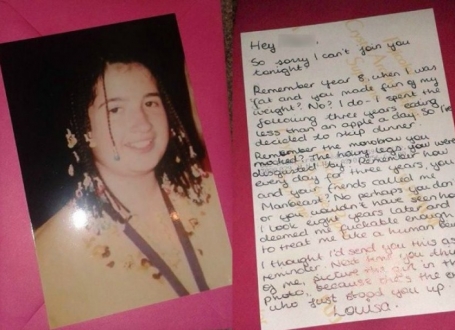 Hey
So sorry I can't join you
tonight.
Remember Year 8, when I was
fat and you made fun of my
weight? No? I do - I spent the
following three years eating
less than an apple a day. So I've
decided to skip dinner.
Remember the monobrow you
mocked? The hairy legs you were
disgusted by? Remember how
every day for three years you
and your friends called me
Manbeast? No perhaps you don't
or you wouldn't have seen how
I look eight years later and
deemed me fuckable enough
to treat me like a human being
I thought I'd send you this as a
reminder. Next time you think
of me, picture the girl in this
photo, because she's the one
who just stood you up.
Louisa.